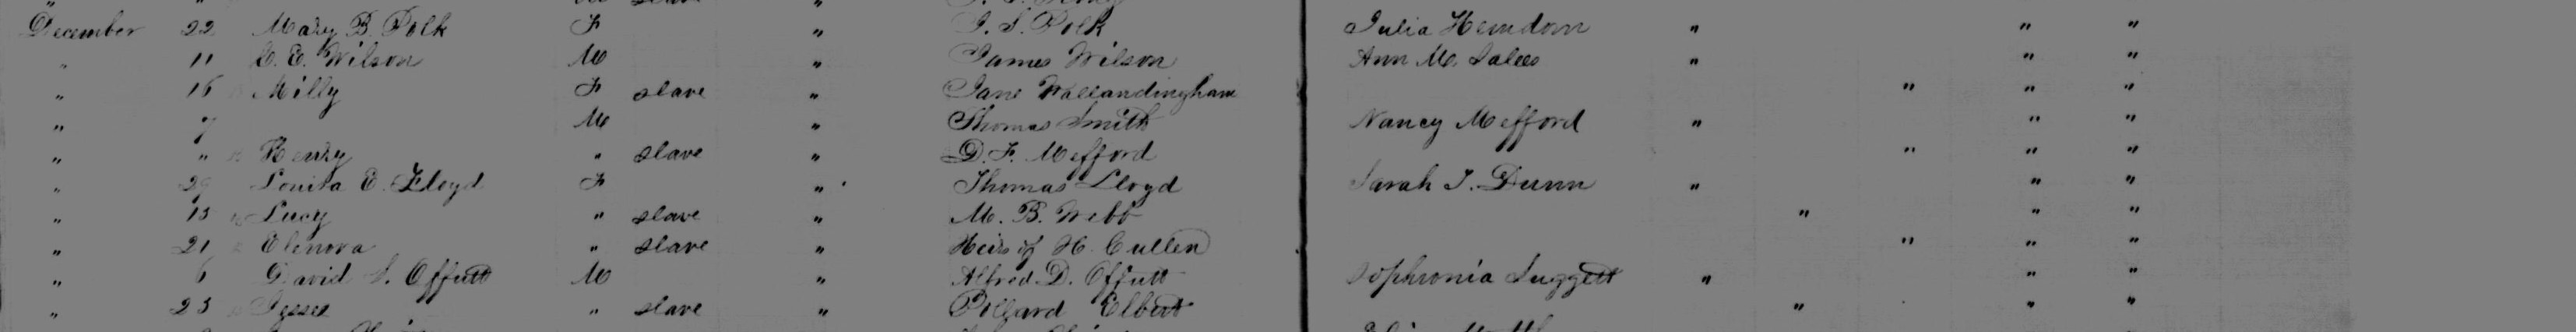 December 22 Mary B. Polk F " J. S. Polk Julia Herndorn " " "
" 11 C. E. Wilson M " James Wilson Ann M. " " "
" 16 Milly F slave " Jane Vallandingham " " "
" 7 M " Thomas Smith Nancy Mefford " " "
" " Henry " slave " D. F. Mefford " " "
" 29 Louisa E. Lloyd F " Thomas Lloyd Sarah J. Dunn " " "
" 13 Lucy " slave " M. B. Webb " " "
" 21 Elenora " slave " Heirs of H. Cullen " " "
" 6 David S. Offutt M " Alfred D. Offutt Sophronia Suggett " " "
" 23 Jessee " slave " Pollard Elbert " " "